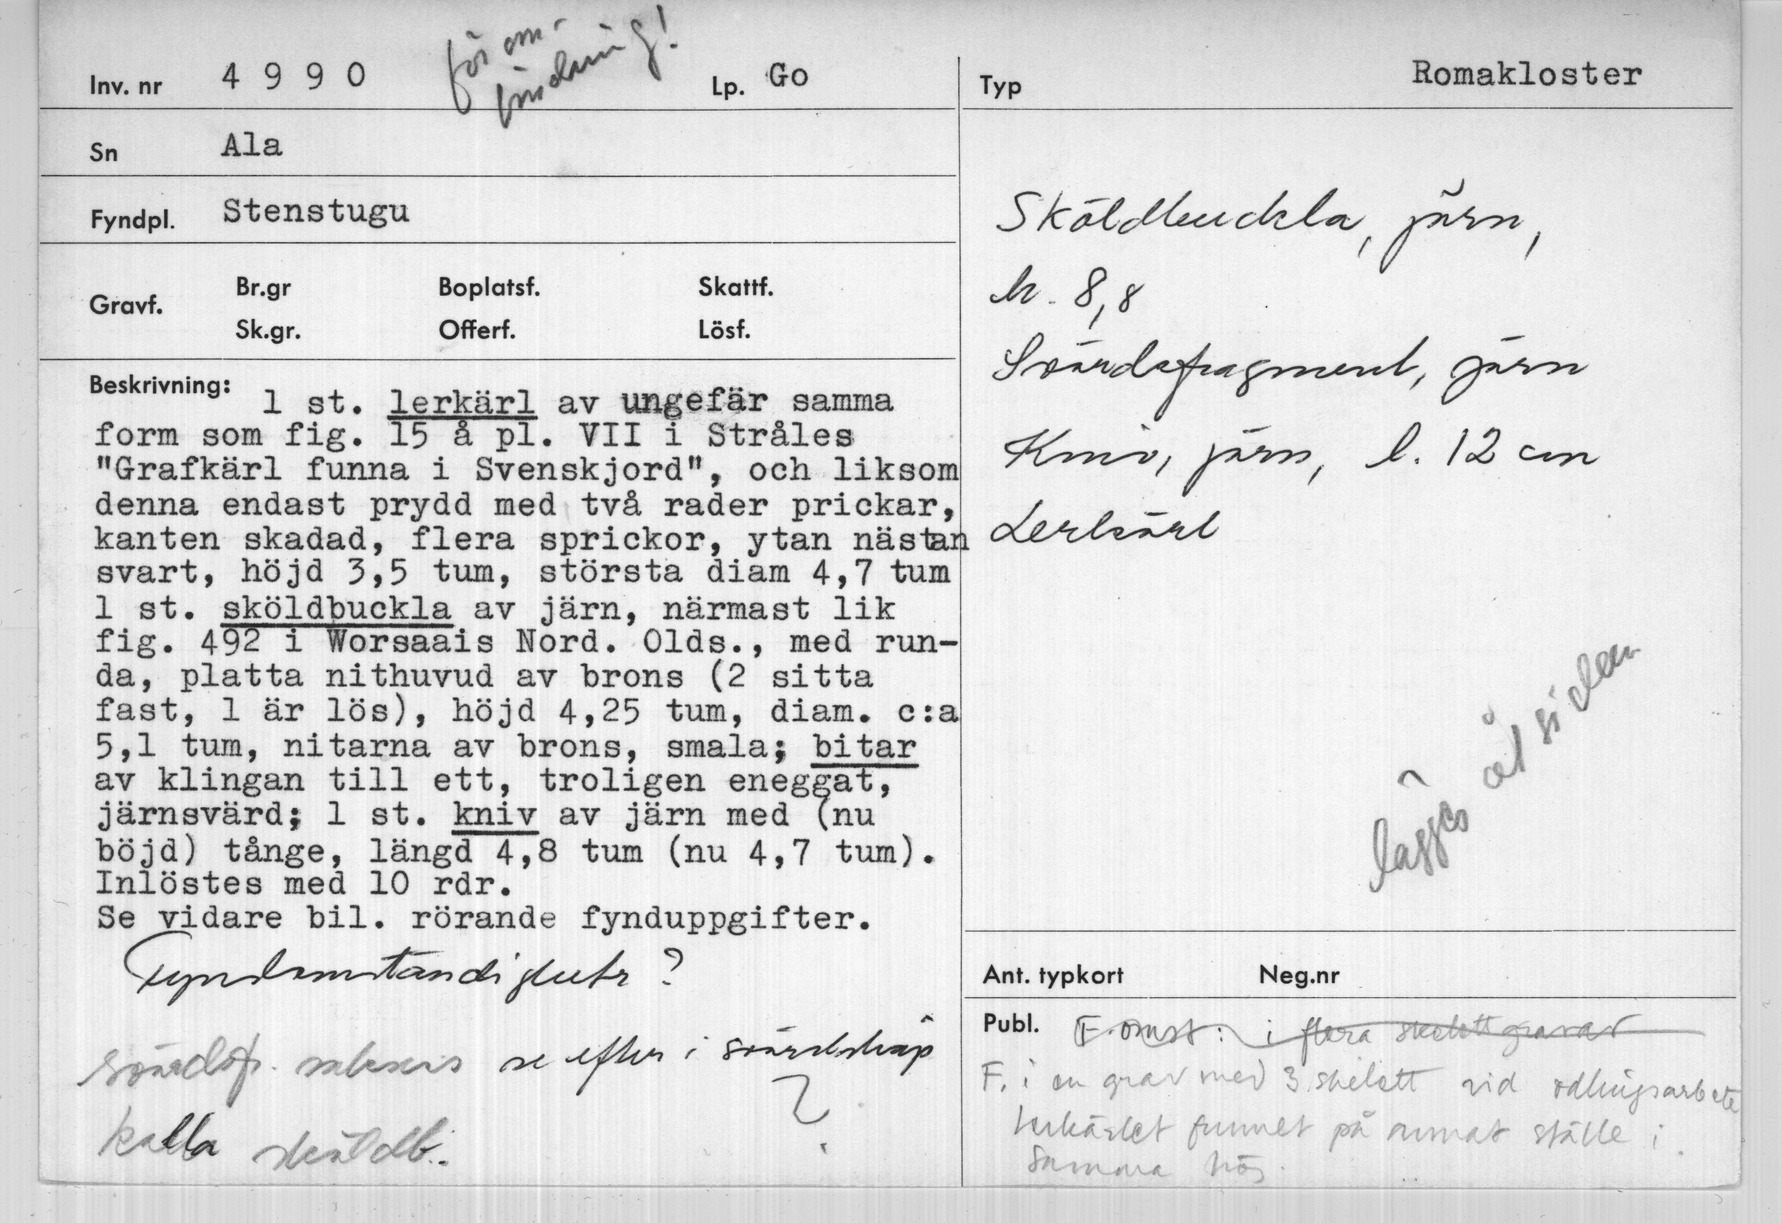 för om-
bindning!
Inv. nr 4 9 9 0 Lp. Go
Sn Ala
Fyndpl. Stenstugu
Gravf. Br.gr Boplatsf. Skattf.
Sk.gr. Offerf. Lösf.
Beskrivning: 1 st. lerkärl av ungefär samma
form som fig. 15 å pl. VII i Stråles
"Grafkärl funna i Svenskjord", och liksom
denna endast prydd med två rader prickar,
kanten skadad, flera sprickor, ytan nästan
svart, höjd 3,5 tum, största diam 4,7 tum
1 st. sköldbuckla av järn, närmast lik
fig. 492 i Worsaais Nord. Olds., med run-
da, platta nithuvud av brons (2 sitta
fast, 1 är lös), höjd 4,25 tum, diam. c:a
5,1 tum, nitarna av brons, smala; bitar
av klingan till ett, troligen eneggat,
järnsvärd; 1 st. kniv av järn med (nu
böjd) tånge, längd 4,8 tum (nu 4,7 tum).
Inlöstes med 10 rdr.
Se vidare bil. rörande fynduppgifter.
Fyndomständigheter ?
svärdsfr. saknas se efter i svärdskåp
?
kolla sköldb.
Typ Romakloster
Sköldbuckla, järn,
h. 8,8
Svärdsfragment, järn
Kniv, järn, l. 12 cm
Lerkärl
lägges åt sidan
Ant. typkort Neg.nr
Publ. F.omst: i flera skelettgravar
F. i en grav med 3 skelett vid odlingsarbete
Lerkärlet funnet på annat ställe i
samma hög.